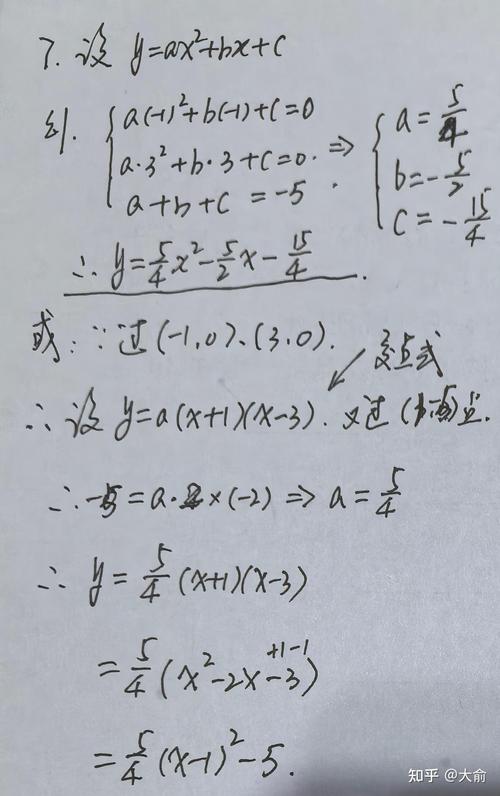 7. 设 y=ax²+bx+c
则. { a(-1)²+b(-1)+c=0
a·3²+b·3+c=0.
a+b+c=-5.
⇒ { a=5/4
b=-5/2
c=-15/4
∴ y=5/4x²-5/2x-15/4.
或: ∵过(-1,0)、(3,0).
交点式
∴设 y=a(x+1)(x-3). 又过(1,-5)点.
∴-5=a·2×(-2) ⇒ a=5/4
∴ y=5/4(x+1)(x-3)
=5/4(x²-2x+1-1-3)
=5/4(x-1)²-5.
知乎 @大俞